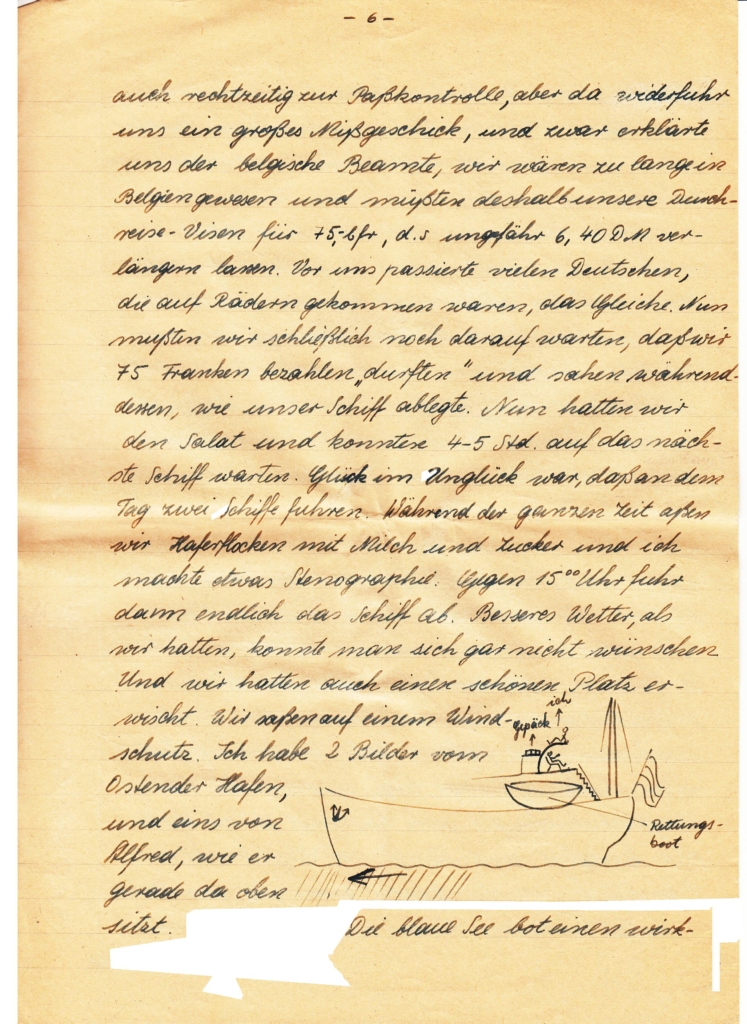 - 6 -
auch rechtzeitig zur Paßkontrolle, aber da widerfuhr
uns ein großes Mißgeschick, und zwar erklärte
uns der belgische Beamte, wir wären zu lange in
Belgien gewesen und müßten deshalb unsere Durch-
reise-Visen für 75,- bfr, d.s ungefähr 6,40 DM ver-
längern lassen. Vor uns passierte vielen Deutschen,
die auf Rädern gekommen waren, das Gleiche. Nun
mußten wir schließlich noch darauf warten, daß wir
75 Franken bezahlen „durften" und sahen während-
dessen, wie unser Schiff ablegte. Nun hatten wir
den Salat und konnten 4-5 Std. auf das näch-
ste Schiff warten. Glück im Unglück war, daß an dem
Tag zwei Schiffe fuhren. Während der ganzen Zeit aßen
wir Haferflocken mit Milch und Zucker und ich
machte etwas Stenographie. Gegen 15⁰⁰ Uhr fuhr
dann endlich das Schiff ab. Besseres Wetter, als
wir hatten, konnte man sich gar nicht wünschen
Und wir hatten auch einen schönen Platz er-
wischt. Wir saßen auf einem Wind-
schutz. Ich habe 2 Bilder vom
Ostender Hafen,
und eins von
Alfred, wie er
gerade da oben
sitzt. Die blaue See bot einen wirk-
ich
Gepäck
Rettungs-
boot